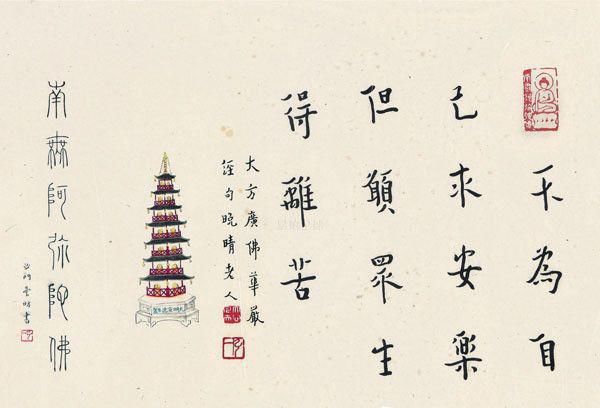 不為自
己求安樂
但願眾生
得離苦
大方廣佛華嚴
經句晚晴老人
南無阿弥陀佛
沙門曇昉書